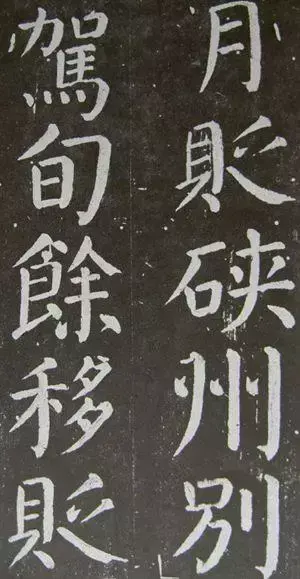 月貶硤州別
駕旬餘移貶